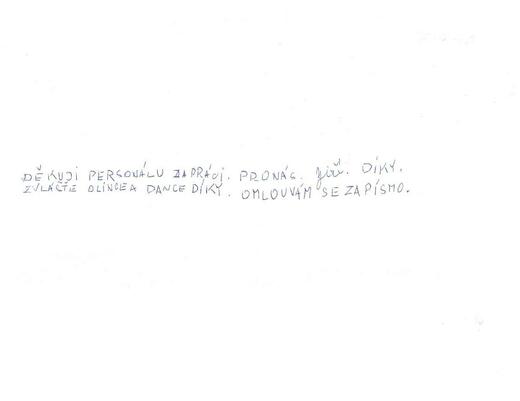 DĚKUJI PERSONÁLU ZA PRÁCI. PRO NÁS. Jiří. DÍKY.
ZVLÁŠTĚ OLINCE A DANCE DÍKY. OMLOUVÁM SE ZA PÍSMO.